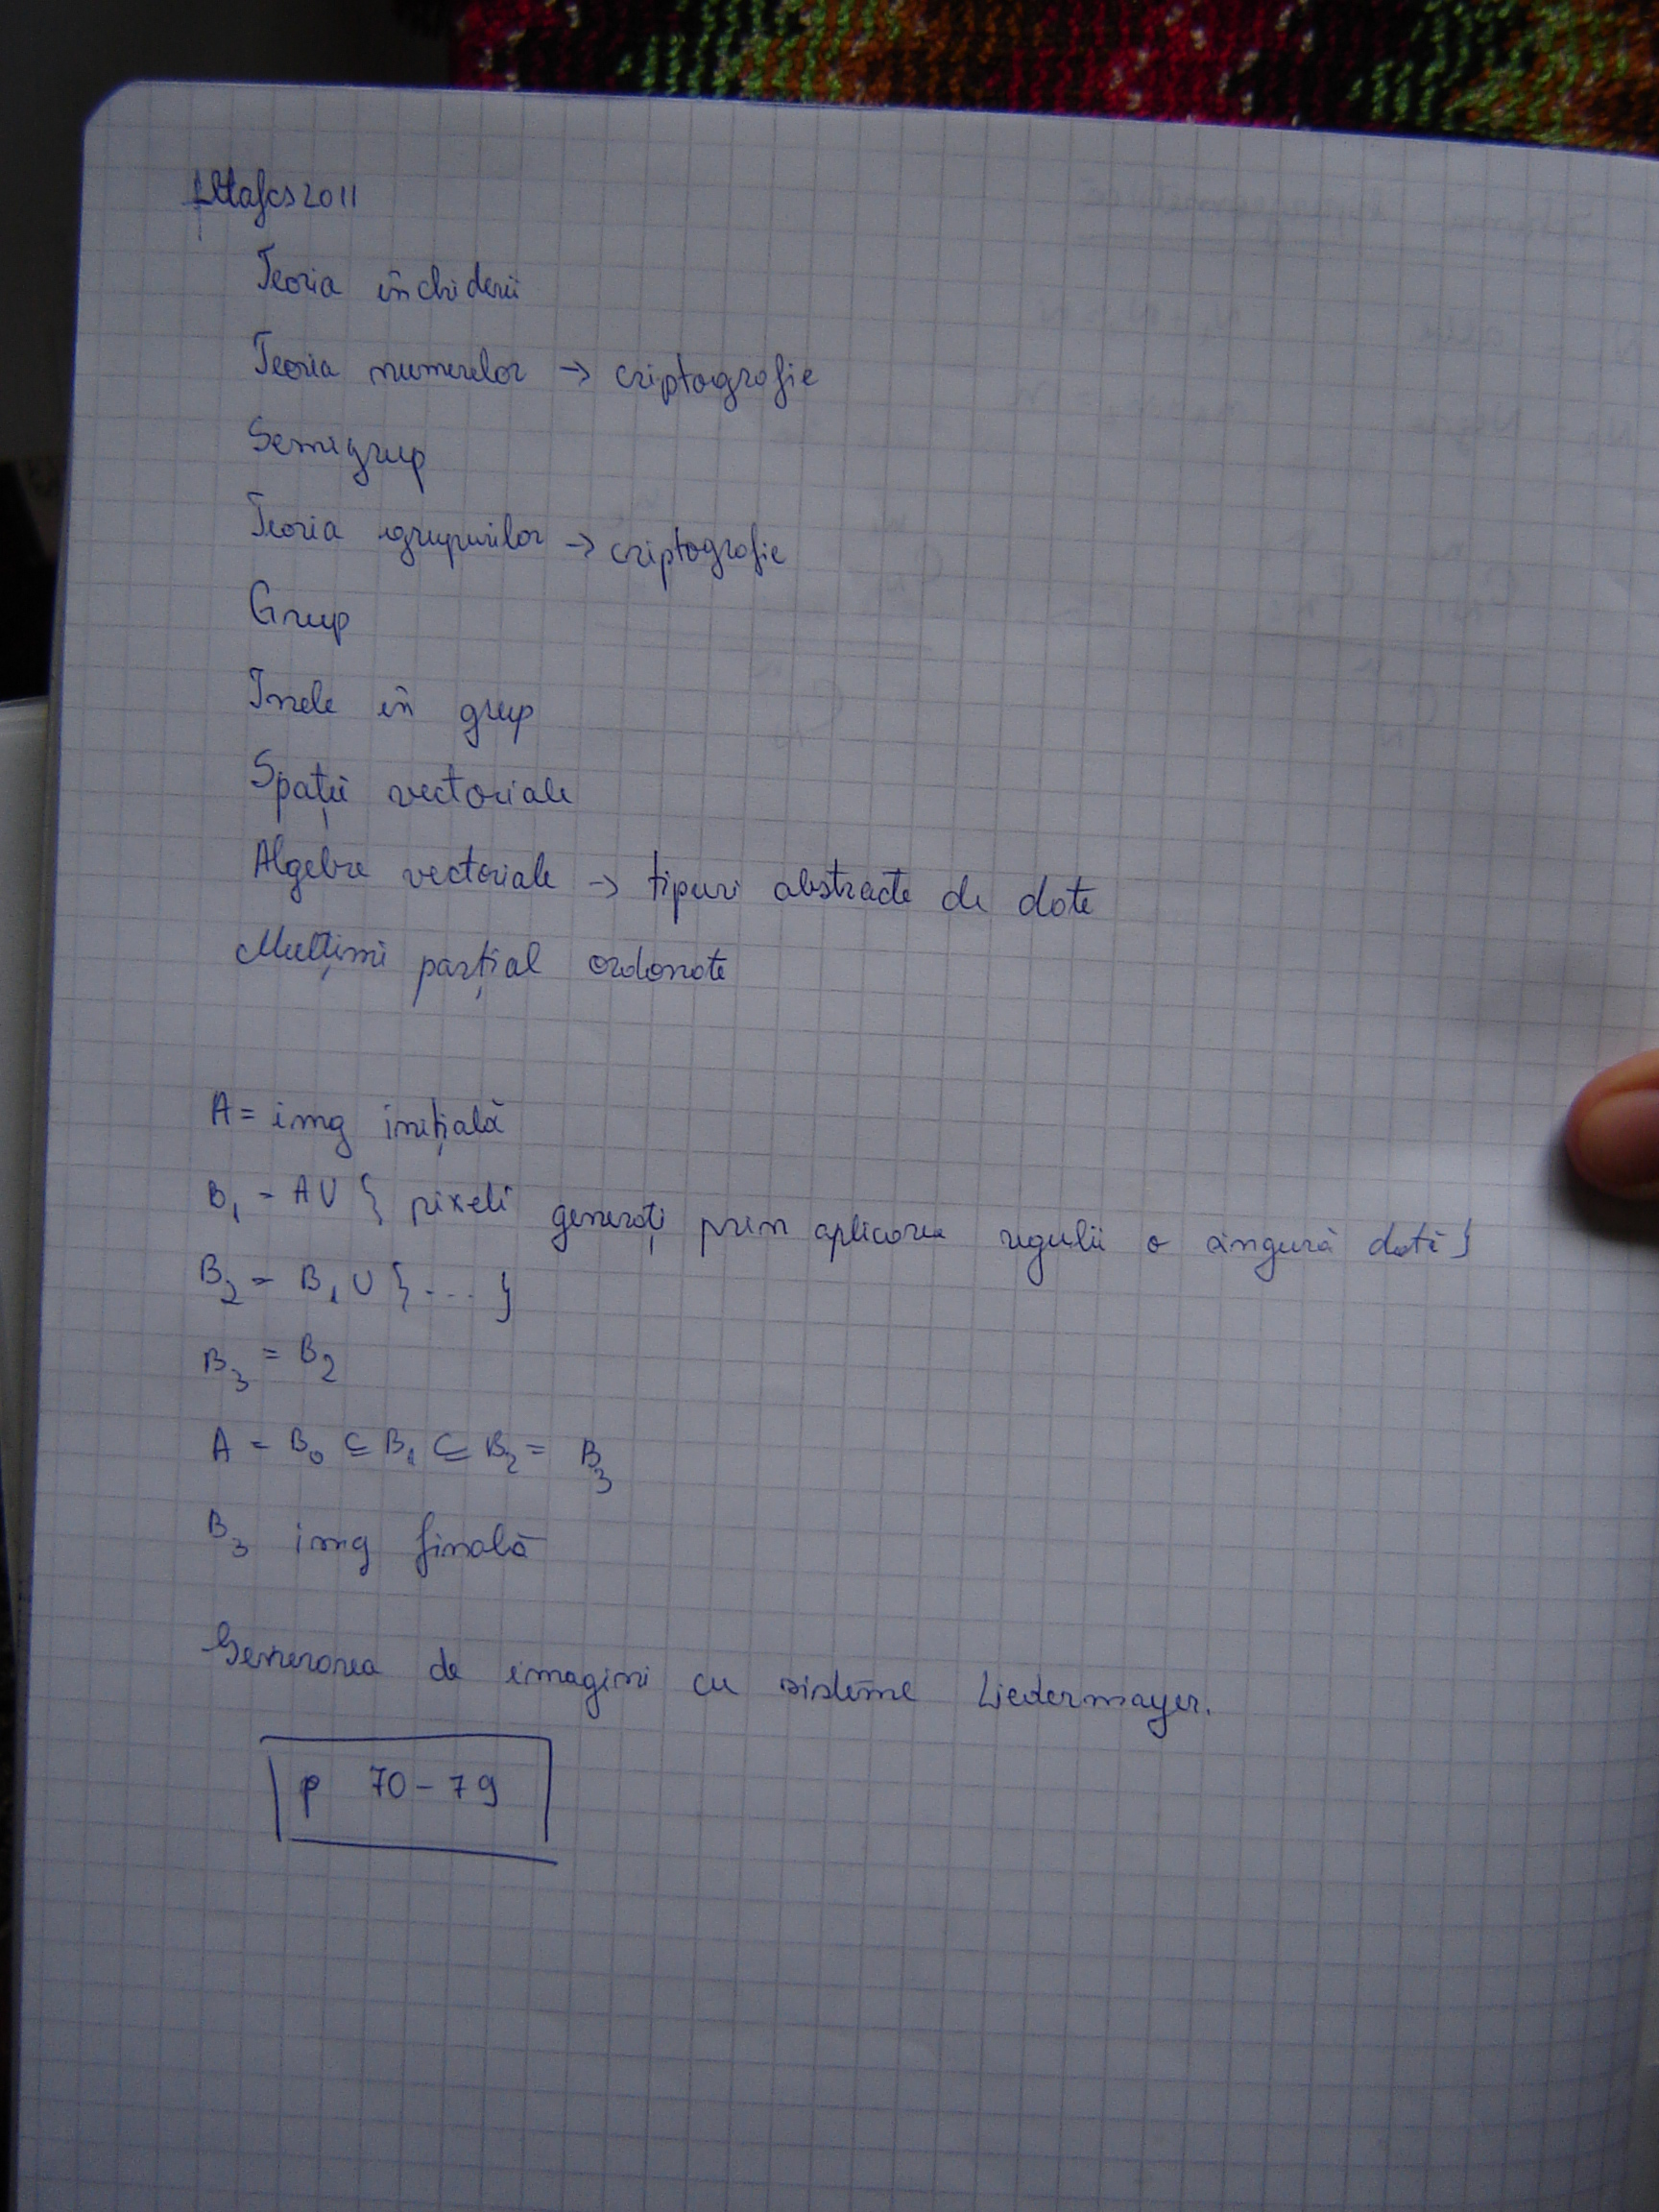 Teoria închiderii
Teoria numerelor → criptografie
Semigrup
Teoria grupurilor → criptografie
Grup
Inele în grup
Spații vectoriale
Algebre vectoriale → tipuri abstracte de date
Mulțimi parțial ordonate
A = img inițială
B₁ = A ∪ { pixeli generați prin aplicarea regulii o singură dată }
B₂ = B₁ ∪ { ... }
B₃ = B₂
A = B₀ ⊆ B₁ ⊆ B₂ = B₃
B₃ img finală
Generarea de imagini cu sisteme
p 70-79